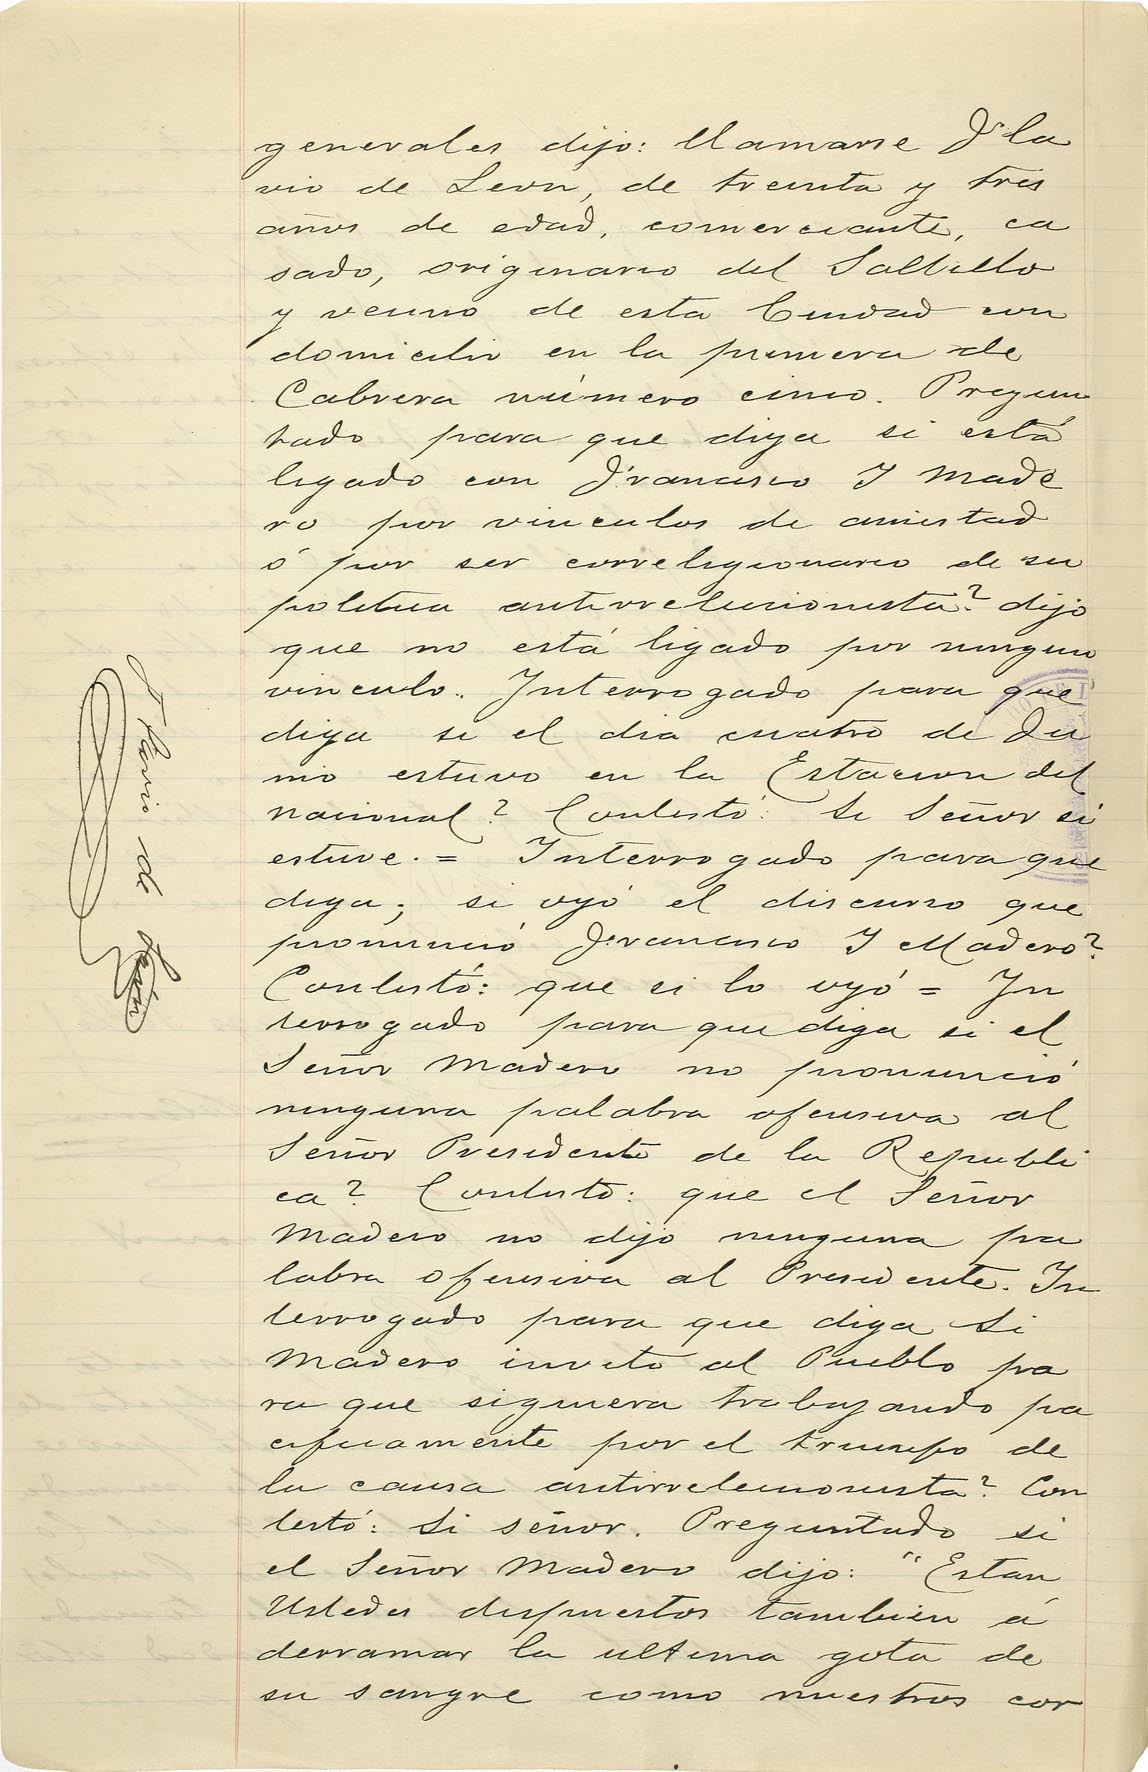 generales dijo: llamarse Fla
vio de Leon, de treinta y tres
años de edad, comerciante, ca
sado, originario del Saltillo
y vecino de esta Ciudad con
domicilio en la primera de
Cabrera número cinco. Pregun
tado para que diga si está
ligado con Francisco I Made
ro por vinculos de amistad
ó por ser correligionario de su
politica antirreleccionista? dijo
que no está ligado por ningun
vinculo. Interrogado para que
diga si el dia cuatro de Ju
nio estuvo en la Estacion del
Nacional? Contestó: Si Señor si
estuve. = Interrogado para que
diga; si oyó el discurso que
pronunció Francisco I Madero?
Contestó: que si lo oyó = In
terrogado para que diga si el
Señor Madero no pronunció
ninguna palabra ofensiva al
Señor Presidente de la Republi
ca? Contesto: que el Señor
Madero no dijo ninguna pa
labra ofensiva al Presidente. In
terrogado para que diga Si
Madero invito al Pueblo pa
ra que siguiera trabajando pa
cificamente por el triunfo de
la causa antirreleccionista? Con
testó: Si señor. Preguntado si
el Señor Madero dijo: "Estan
Ustedes dispuestos tambien á
derramar la ultima gota de
su sangre como nuestros cor
Flavio de León